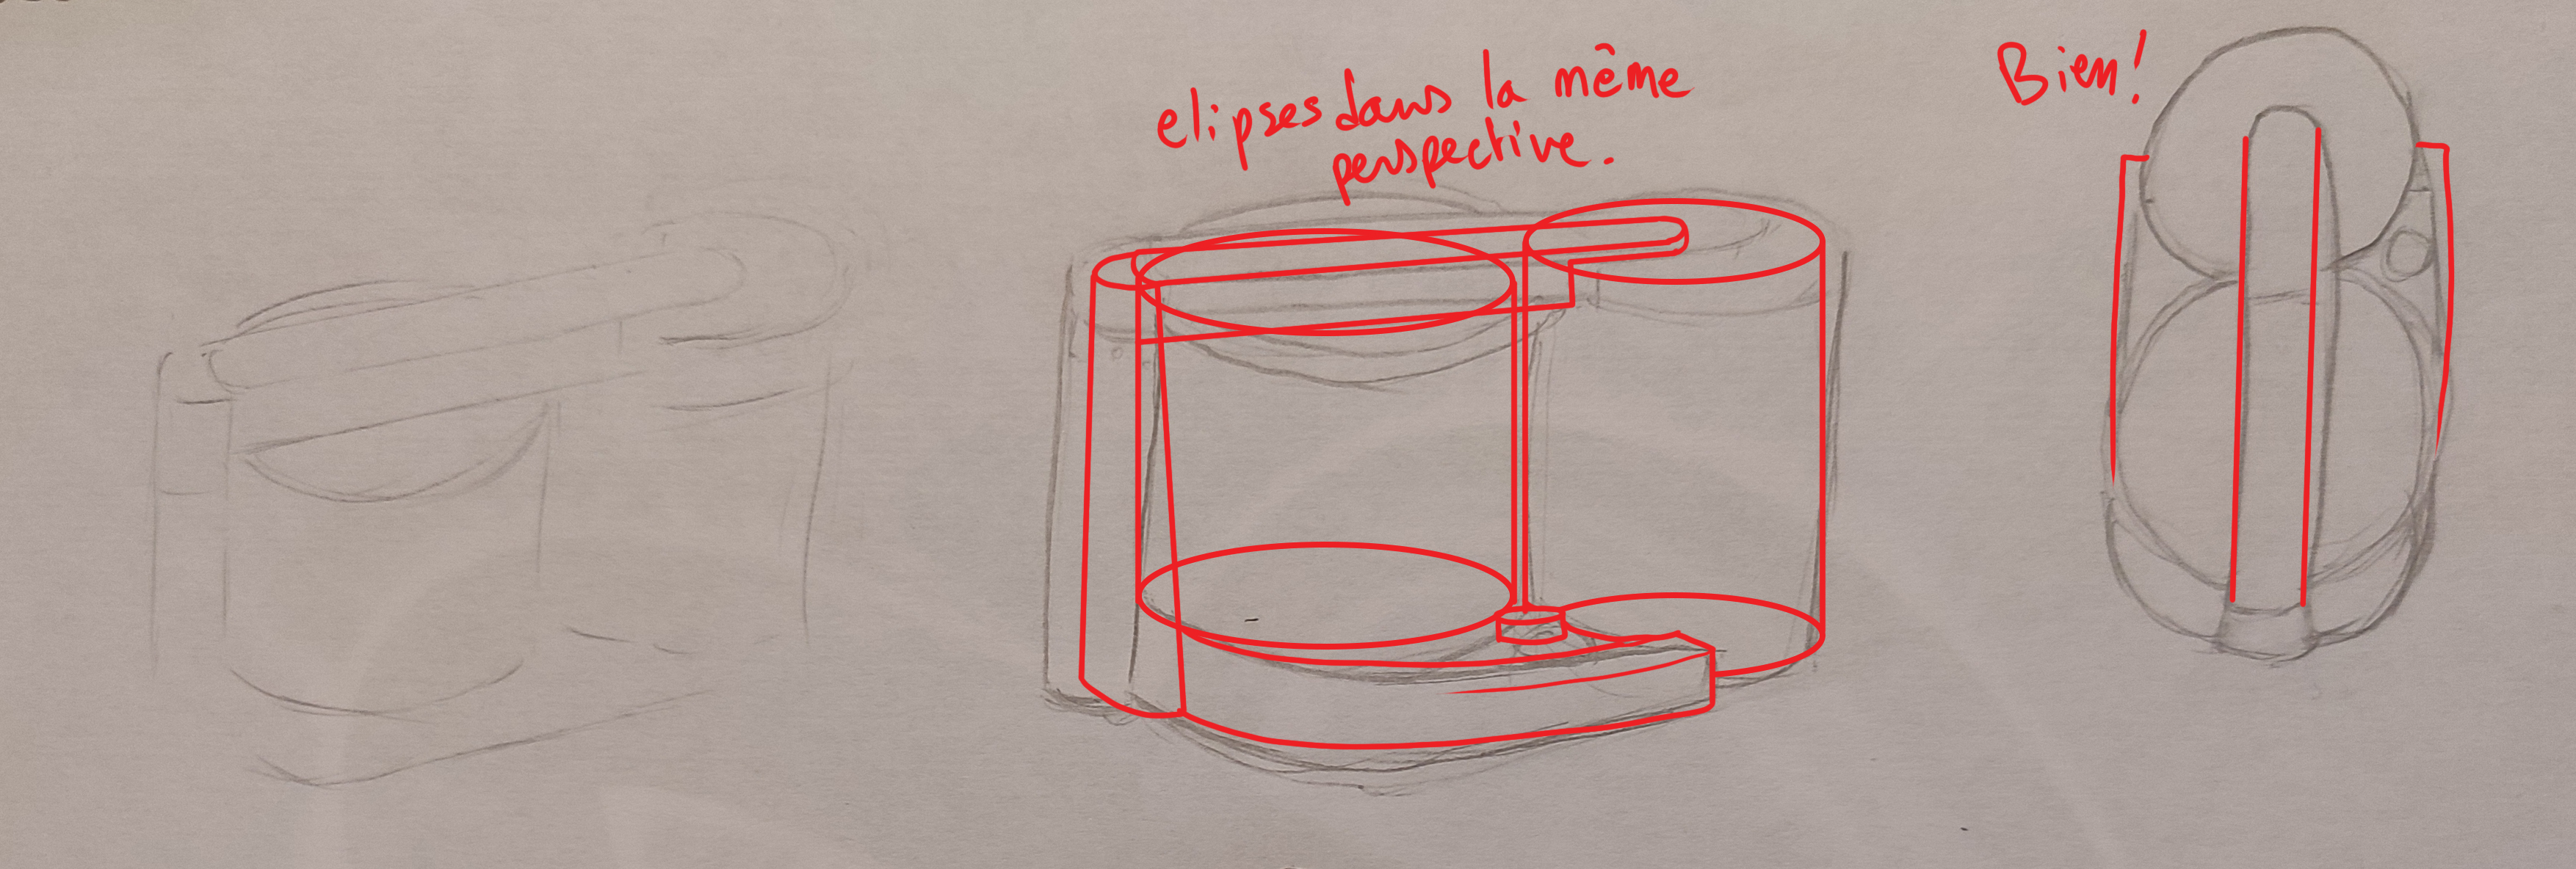 elipses dans la même
perspective.
Bien!